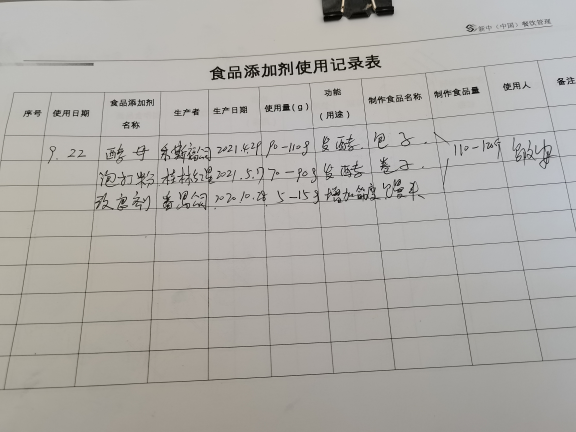 新中（中国）餐饮管理
食品添加剂使用记录表
序号 使用日期 食品添加剂名称 生产者 生产日期 使用量(g) 功能（用途） 制作食品名称 制作食品量 使用人 备注
9.22 酵母 2021.4.29 90-110g 发酵 包子 110-120g
泡打粉 桂林红星 2021.5.17 70-90g 发酵 卷子
改良剂 番禺 2020.10.28 5-15g 增加 馒头